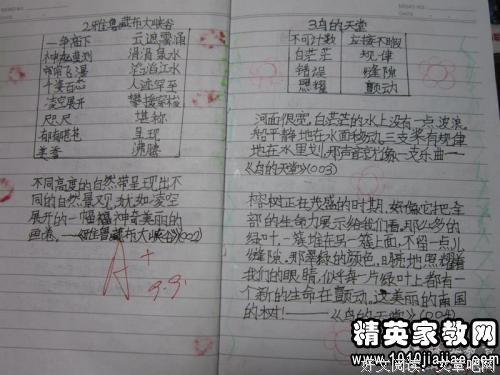 2.雅鲁藏布大峡谷
一争高下 云遮雾涌
神秘莫测 涓涓泉水
帘帘飞瀑 滔滔江水
千姿百态 人迹罕至
凌空展开 攀援穿梭
咫尺 堪称
郁郁苍苍 呈现
美誉 沸腾
不同高度的自然带呈现出不
同的自然景观,犹如凌空
展开的一幅幅神奇美丽的
画卷。——《雅鲁藏布大峡谷》(002)
A+
9.9
3.鸟的天堂
不可计数 应接不暇
白茫茫 规律
错误 缝隙
照耀 颤动
河面很宽,白茫茫的水上没有一点波浪。
船平静地在水面移动。三支桨有规律
地在水里划,那声音就像一支乐曲——
《鸟的天堂》(003)
榕树正在茂盛的时期,好像它把全
部的生命力展示给我们看。那么多的
绿叶,一簇堆在另一簇上面,不留一点儿
缝隙。那翠绿的颜色,明亮地照耀着
我们的眼睛,似乎每一片绿叶上都有一
个新的生命在颤动。这美丽的南国
的树!——《鸟的天堂》(004)
精英家教网
www.1010jiajiao.com
好文阅读:文章吧网